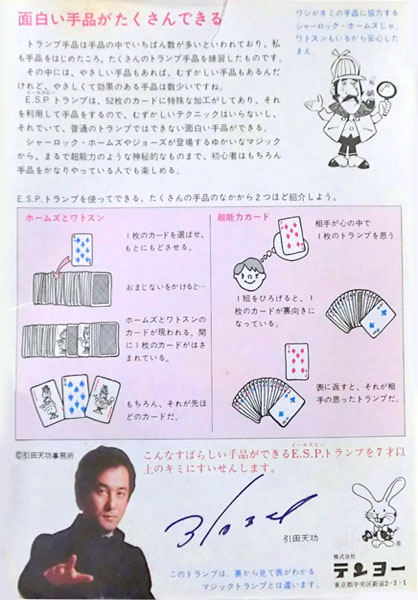 面白い手品がたくさんできる
トランプ手品は手品の中でいちばん数が多いといわれており、私
も手品をはじめたころ、たくさんのトランプ手品を練習したものです。
その中には、やさしい手品もあれば、むずかしい手品もあるんだ
けれど、やさしくて効果のある手品は数少いですね。
E.S.P.トランプは、52枚のカードに特殊な加工がしてあり、それ
を利用して手品をするので、むずかしいテクニックはいらないし、
それでいて、普通のトランプではできない面白い手品ができる。
シャーロック・ホームズやジョーズが登場するゆかいなマジック
から、まるで超能力のような神秘的なものまで、初心者はもちろん
手品をかなりやっている人でも楽しめる。
ワシがキミの手品に協力する
シャーロック・ホームズじゃ。
ワトスンもいるから安心した
まえ。
E.S.P.トランプを使ってできる、たくさんの手品のなかから2つほど紹介しよう。
ホームズとワトスン
1枚のカードを選ばせ、
もとにもどさせる。
おまじないをかけると…
ホームズとワトスン
のカードが現われる。間
に1枚のカードがはさ
まれている。
もちろん、それが先ほ
どのカードだ。
超能力カード
相手が心の中で
1枚のトランプを思う
1組をひろげると、1
枚のカードが裏向きに
なっている。
表に返すと、それが相
手の思ったトランプだ。
©引田天功事務所
イーエスピー
こんなすばらしい手品ができるE.S.P.トランプを7才以
上のキミにすいせんします。
引田天功
このトランプは、裏から見て表がわかる
マジックトランプとは違います。
®
株式会社
テンヨー
東京都中央区新富2-3-1